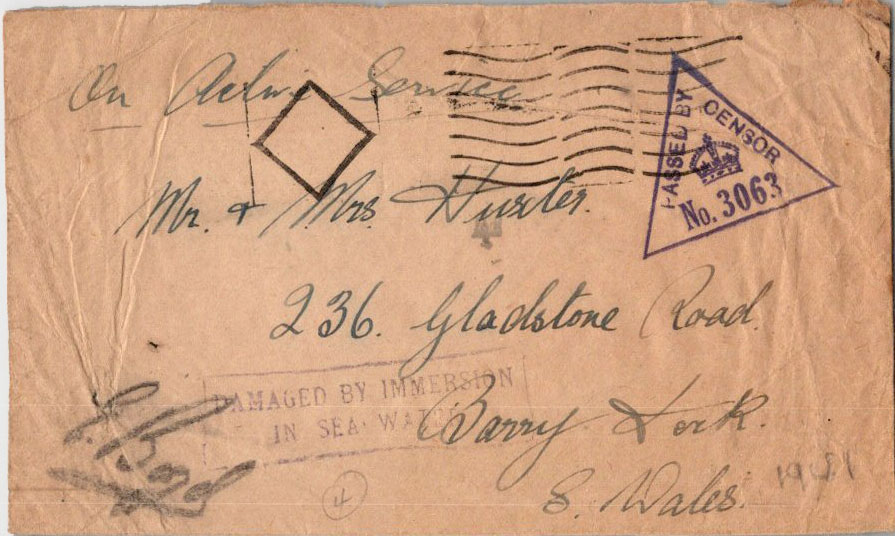 On Active Service
PASSED BY CENSOR
No. 3063
Mr. & Mrs. Huxter.
236. Gladstone Road.
DAMAGED BY IMMERSION
IN SEA WATER
Barry Dock.
S. Wales.
4